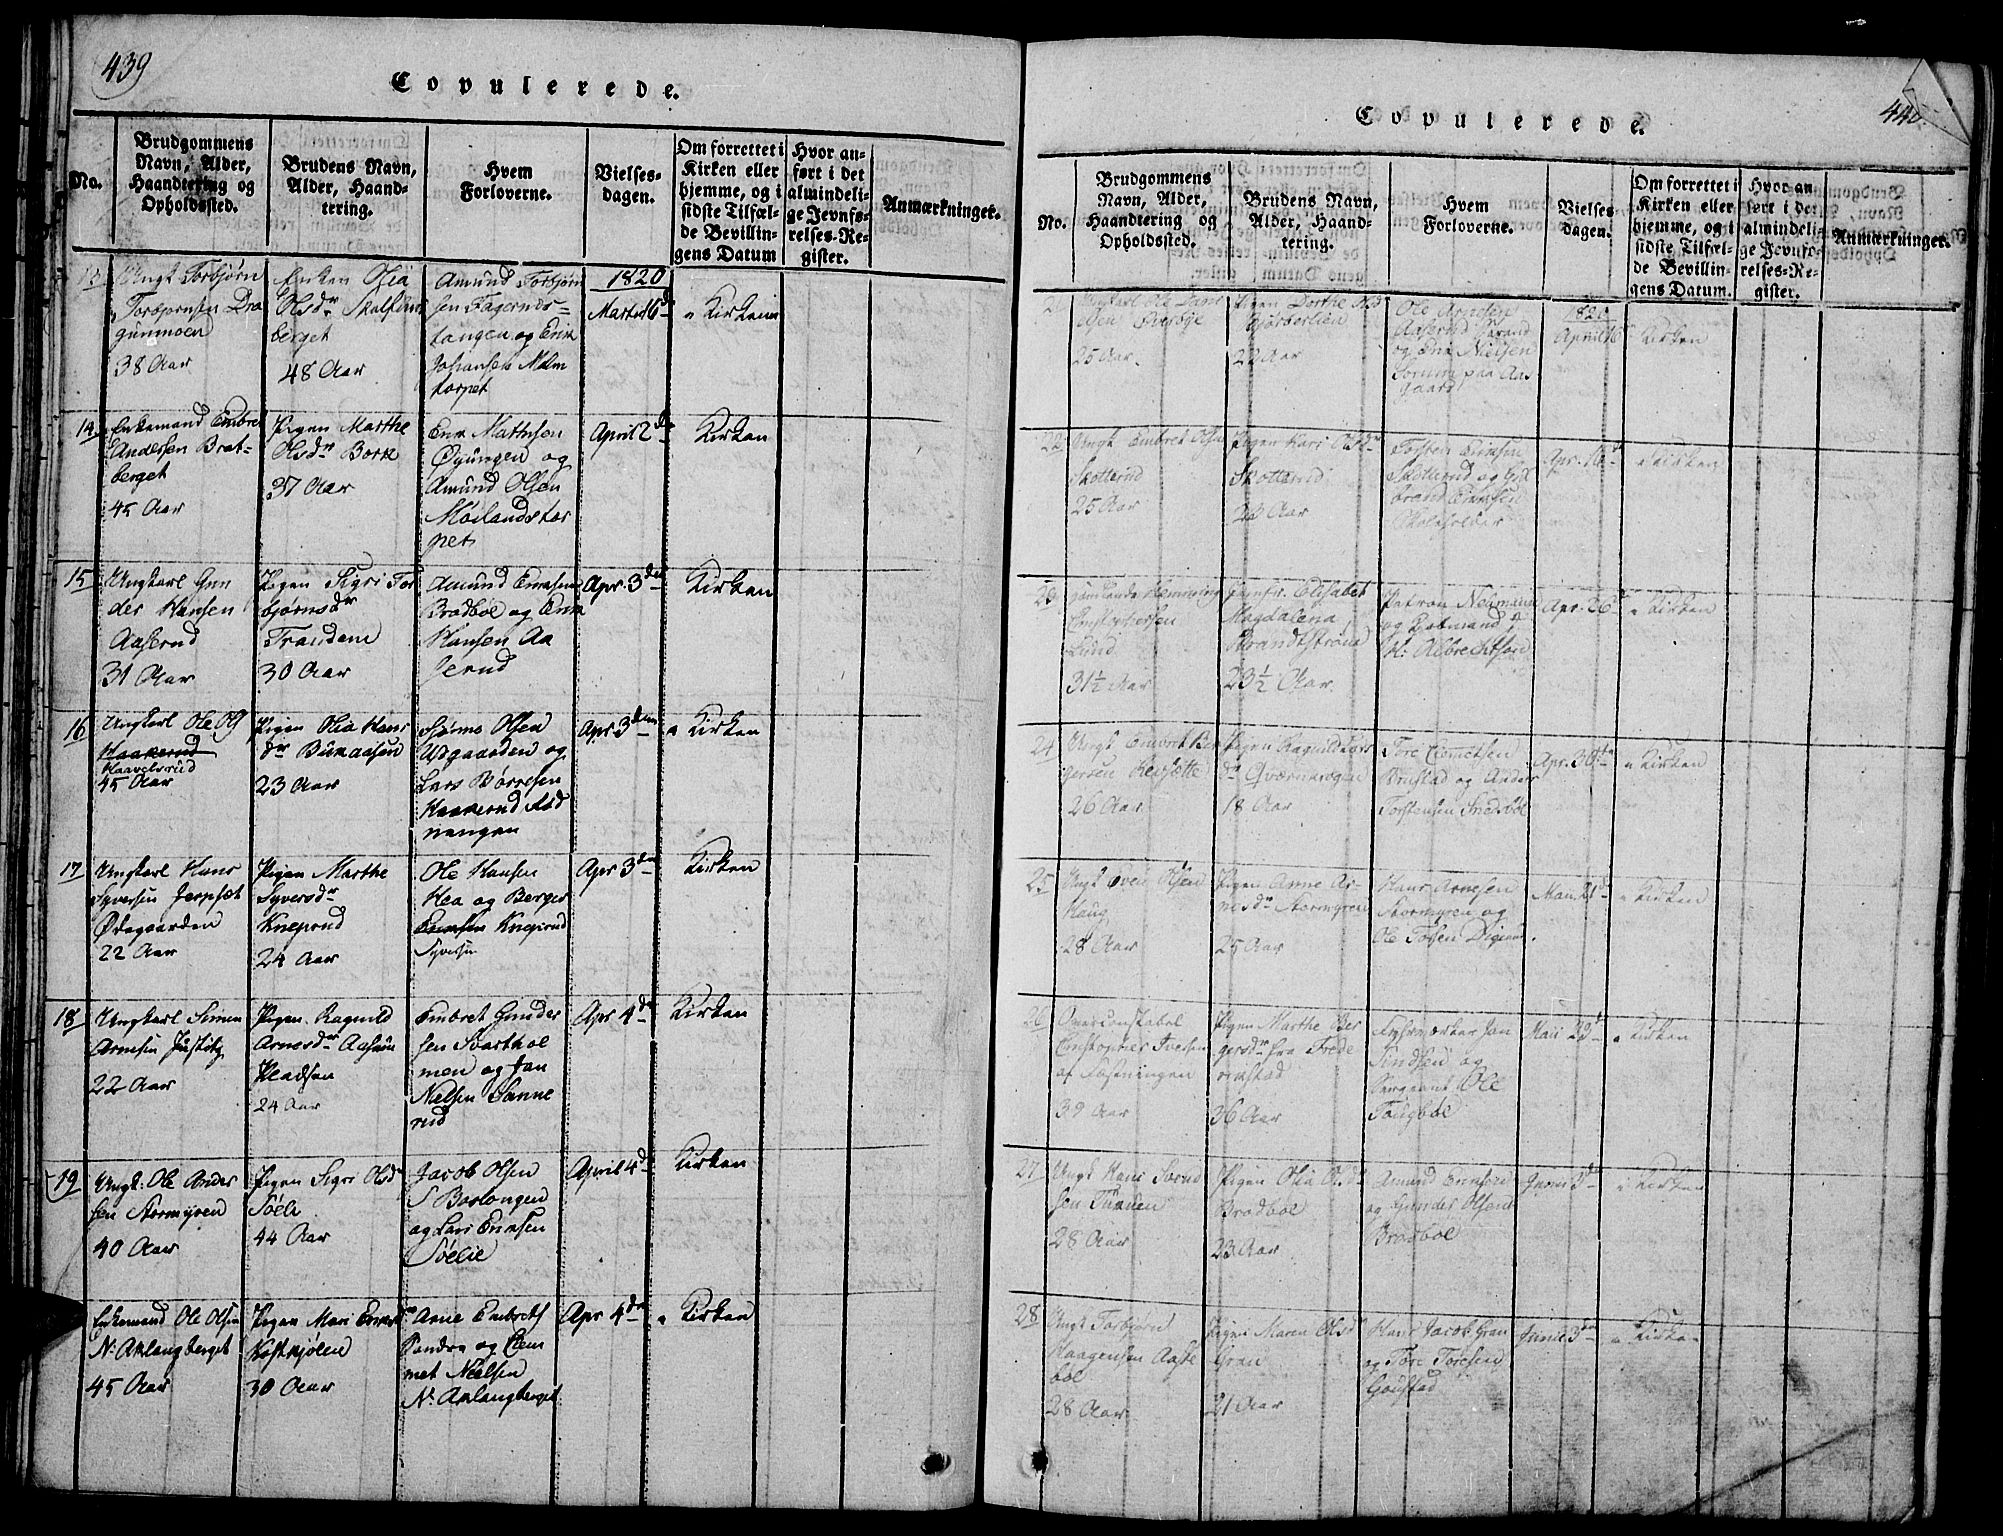 439
Copulerede.
No.
Brudgommens
Navn, Alder,
Haandtering og
Opholdssted.
Brudens Navn,
Alder, Haand-
tering.
Hvem
Forloverne.
Vielses-
dagen.
Om forrettet i
Kirken eller
hjemme, og i
sidste Tilfæl-
de Bevillin-
gens Datum
Hvor an-
ført i det
almindeli-
ge Jevnfø-
relses-Re-
gister.
Anmærkninger.
Ungk Torbjørn
Torbjørnsen Dra
gunmoen
38 Aar
Enken Olia
Olsdr
berget
48 Aar
Amund Torbjørn
sen Fagernds-
tangen og Erik
Johansen Malm
torpet
1820
Marts 16d
Kirken
14
Enkemand Embret
Andersen Brat-
berget
45 Aar
Pigen Marthe
Olsdr Bork
37 Aar
Erik Mathisen
Øyungen og
Amund Olsen
Møilandstor
pet
April 2d
Kirken
15
Ungkarl Gun
der Hansen
Aaserud
31 Aar
Pigen Sigri Tor
bjørnsdr
Trandem
30 Aar
Amund Ericksen
Bradbøl og Erik
Hansen Aa
serud
Apr. 3den
Kirken
16
Ungkarl Ole Ols
Haakerud
Haavelsrud
45 Aar
Pigen Olia Hans
dr Buraasen
23 Aar
Olsen
Udgaarden og
Lars Børresen
Haakerud
nangen
Apr 3den
Kirken
17
Ungkarl Hans
Syversen Jerpset
Ødegaarden
22 Aar
Pigen Marthe
Syversdr
Kneprud
24 Aar
Ole Hansen
Hea og Berger
Ericksen Kneprud
Syversen
Apr 3den
Kirken
18
Ungkarl Simen
Arnesen
22 Aar
Pigen Ragnild
Arnesdr Aaserud
Pladsen
24 Aar
Embret Gunder
sen Svarthol
men og Jan
Nielsen Sanne
rud
Apr 4de
Kirken
19
Ungk. Ole Ander
sen Stormyren
40 Aar
Pigen Sigri Olsdr
Søli
44 Aar
Jacob Olsen
S Baslangen
og Lars Ericksen
Sølie
April 4d
Kirken
Enkemand Ole Olsen
N: Aklangberget
45 Aar
Pigen Mari
Kostkjølen
30 Aar
Arne Embrets
Sandra og Clem
met Nielsen
N: Aklangberget
Apr 4de
Kirken
440
Copulerede.
No.
Brudgommens
Navn, Alder,
Haandtering og
Opholdssted.
Brudens Navn,
Alder, Haand-
tering.
Hvem
Forloverne.
Vielses-
dagen.
Om forrettet i
Kirken eller
hjemme, og i
sidste Tilfæl-
de Bevillin-
gens Datum.
Hvor an
ført i det
almindeli-
ge Jevnfø-
relses-Re-
gister.
Anmærkninger.
Ungkarl Ole
25 Aar
Pigen Dorthe Olsd
Bjørberlien
22 Aar
Ole Arnesen
Aaserud Strand
og Erik Nielsen
Sorum paa Aas
gaard
1820
April 16
Kirken
22
Ungk Embret Olsen
Skotterud
25 Aar
Pigen Kari Olsdr
Skotterud
Aar
Torsten Ericksen
Skotterud og Gul
brand Ericksen
Skoleholder
Apr. 16d
Kirken
23
Hemming
Christophersen
Lund
31½ Aar
Jomfr. Elisabet
Magdalena
Brandtstrøm
23½ Aar
Patron Neumann
H: Albrechtsen
Apr. 26
Kirken
24
Ungk Embret Ber
gersen
26 Aar
Pigen Ragnild Tores
dr Qværnmogen
18 Aar
Tore Clemetsen
Brustad og Anders
Torstensen Snesbøl
Apr. 30te
Kirken
25
Ungk Even Olsen
Haug
28 Aar
Pigen Anne Ar
nesdr Stormyren
25 Aar
Hans Arnesen
Stormyren og
Ole Tolsen
Mai 21d
Kirken
26
Overconstabel
Christopher Iversen
af Fæstningen
39 Aar
Pigen Marthe Ber
gersdr fra Frede
rikstad
36 Aar
Fyrverker Jan
og
Sergeant Ole
Tangbøl
Mai 23d
Kirken
27
Ungk Hans
sen
28 Aar
Pigen Olia Olsd
Bradbøl
23 Aar
Amund Ericksen
og Gunder Olsen
Bradbøl
Juni 3d
Kirken
28
Ungk Torbjørn
Haagensen Aaste
bøl
28 Aar
Pigen Maren Olsd
Gran
21 Aar
Hans Jacob Gran
og Tore Toresen
Goustad
Junii 3de
Kirke